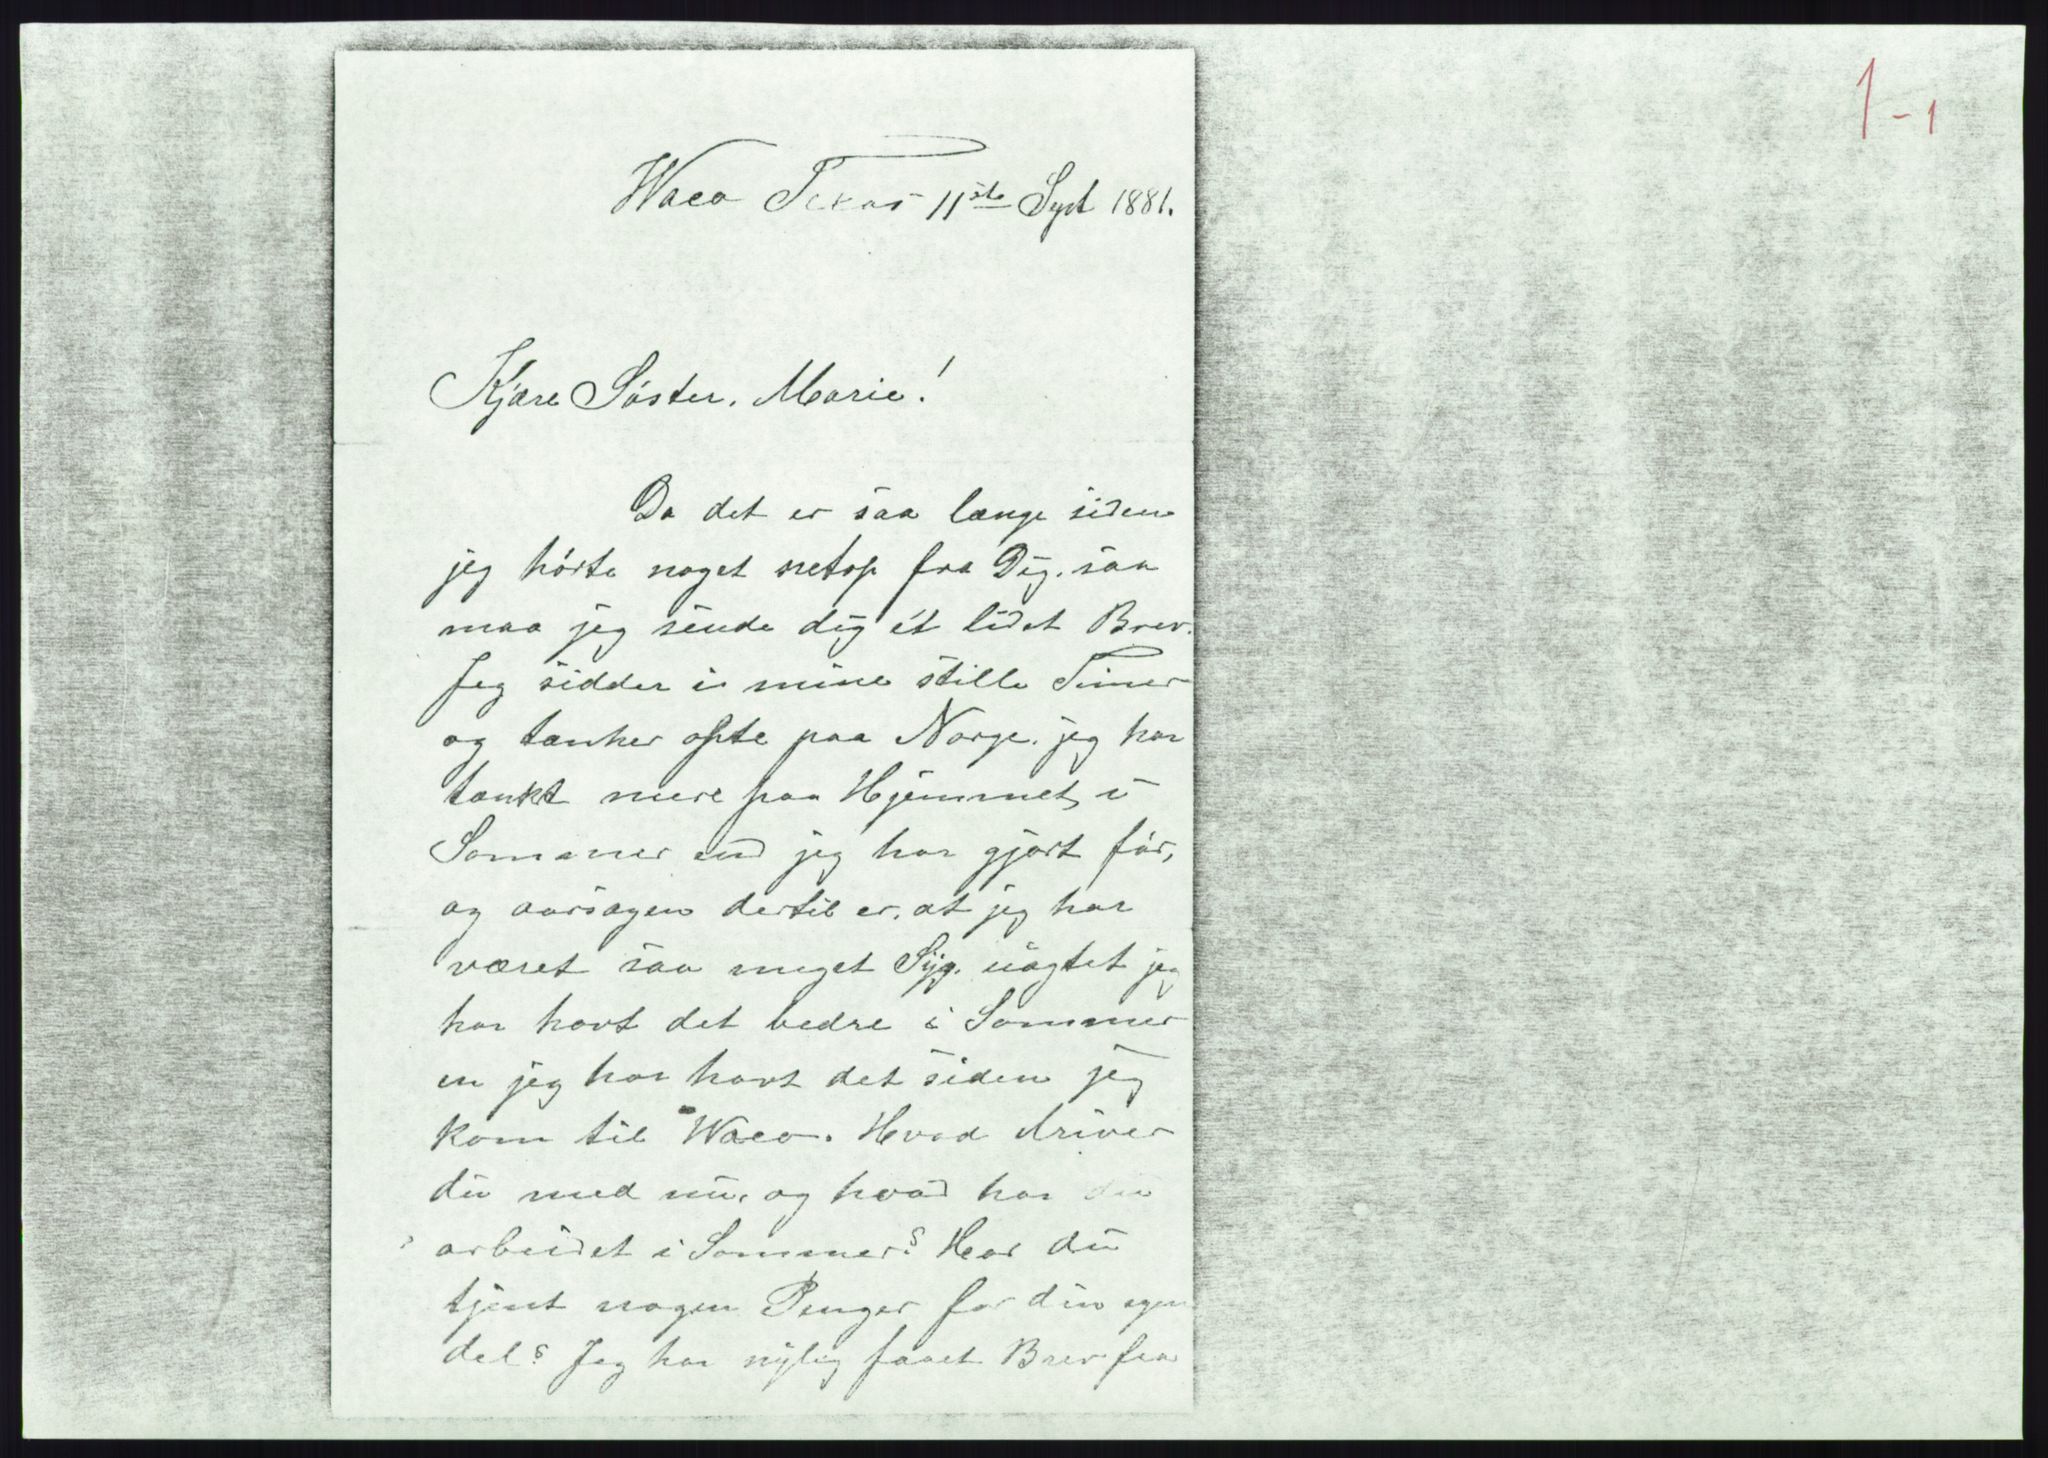 1-1
Waco Texas 11ste Sept 1881.
Kjære Søster, Marie!
Da det er saa længe siden
jeg hørte noget netop fra Dig, saa
maa jeg sende dig et lidet Brev.
Jeg sidder i mine stille Timer
og tænker ofte paa Norge. jeg har
tænkt mere paa Hjemmet, i
Sommer end jeg har gjort før,
og aarsagen dertil er, at jeg har
været saa meget Syg. uagtet jeg
har havt det bedre i Sommer
en jeg har havt det siden jeg
kom til Waco. Hvad driver
du med nu, og hvad har du
arbeidet i Sommer? Har du
tjent nogen Penger for din egen
del? Jeg har nylig faaet Brev fra